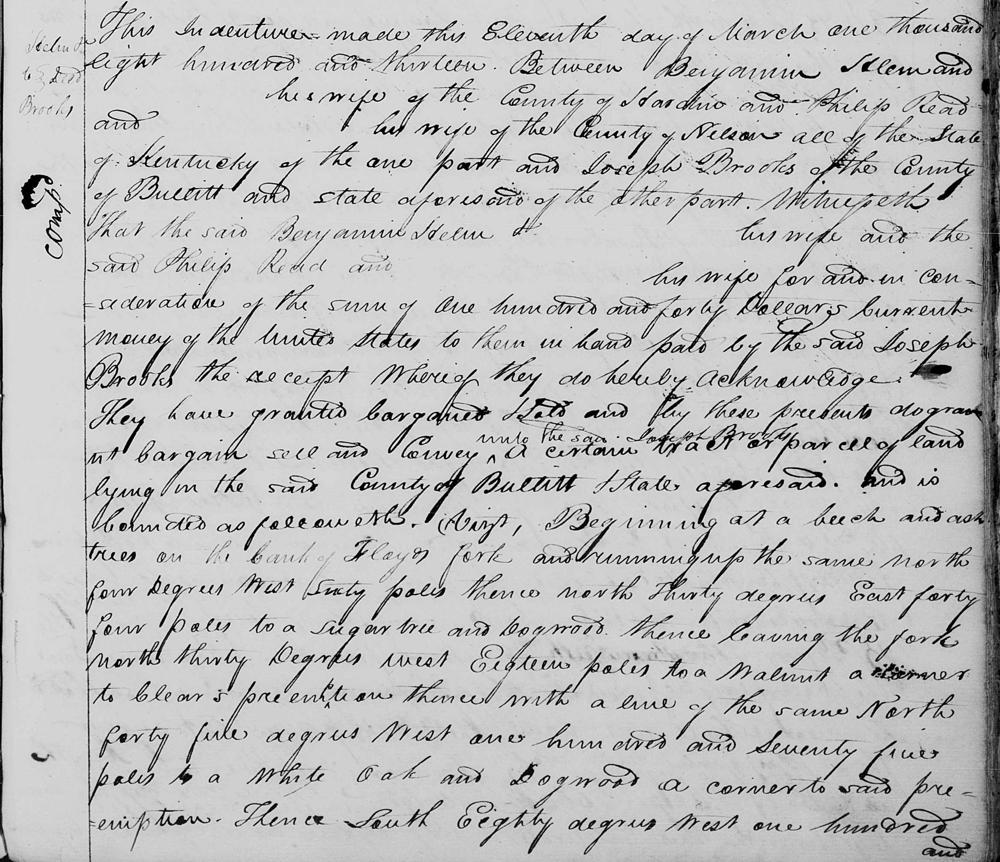 Helm &
to } Deed
Brooks
Comp.d
This Indenture made this Eleventh day of March one thousand
eight hundred and Thirteen. Between Benjamin Helm and
his wife of the County of Hardin and Philip Read
and his wife of the County of Nelson all of the State
of Kentucky of the one part and Joseph Brooks of the County
of Bullitt and state aforesaid of the other part. Witnesseth
That the said Benjamin Helm & his wife and the
said Philip Read and his wife for and in con-
-sideration of the sum of One hundred and forty Dollars Current
money of the United States to them in hand paid by the said Joseph
Brooks the receipt Whereof they do hereby Acknowledge.
They have granted bargained & Sold and by these presents do gran
nt bargain sell and Convey unto the said Joseph Brooks a certain tract or parcel of land
lying in the said County of Bullitt & State aforesaid. and is
bounded as followeth. (Vizt, Beginning at a beech and ash
trees on the bank of Floyds fork and running up the same north
four Degrees West Sixty poles thence north Thirty degrees East forty
four poles to a Sugar tree and Dogwood. thence leaving the fork
north thirty Degrees west Eigteen poles to a Walnut a corner
to Clear's preemtion thence with a line of the same North
forty five degrees West one hundred and Seventy five
poles to a White Oak and Dogwood a corner to said pre-
-emption. Thence South Eighty degrees West one hundred
and